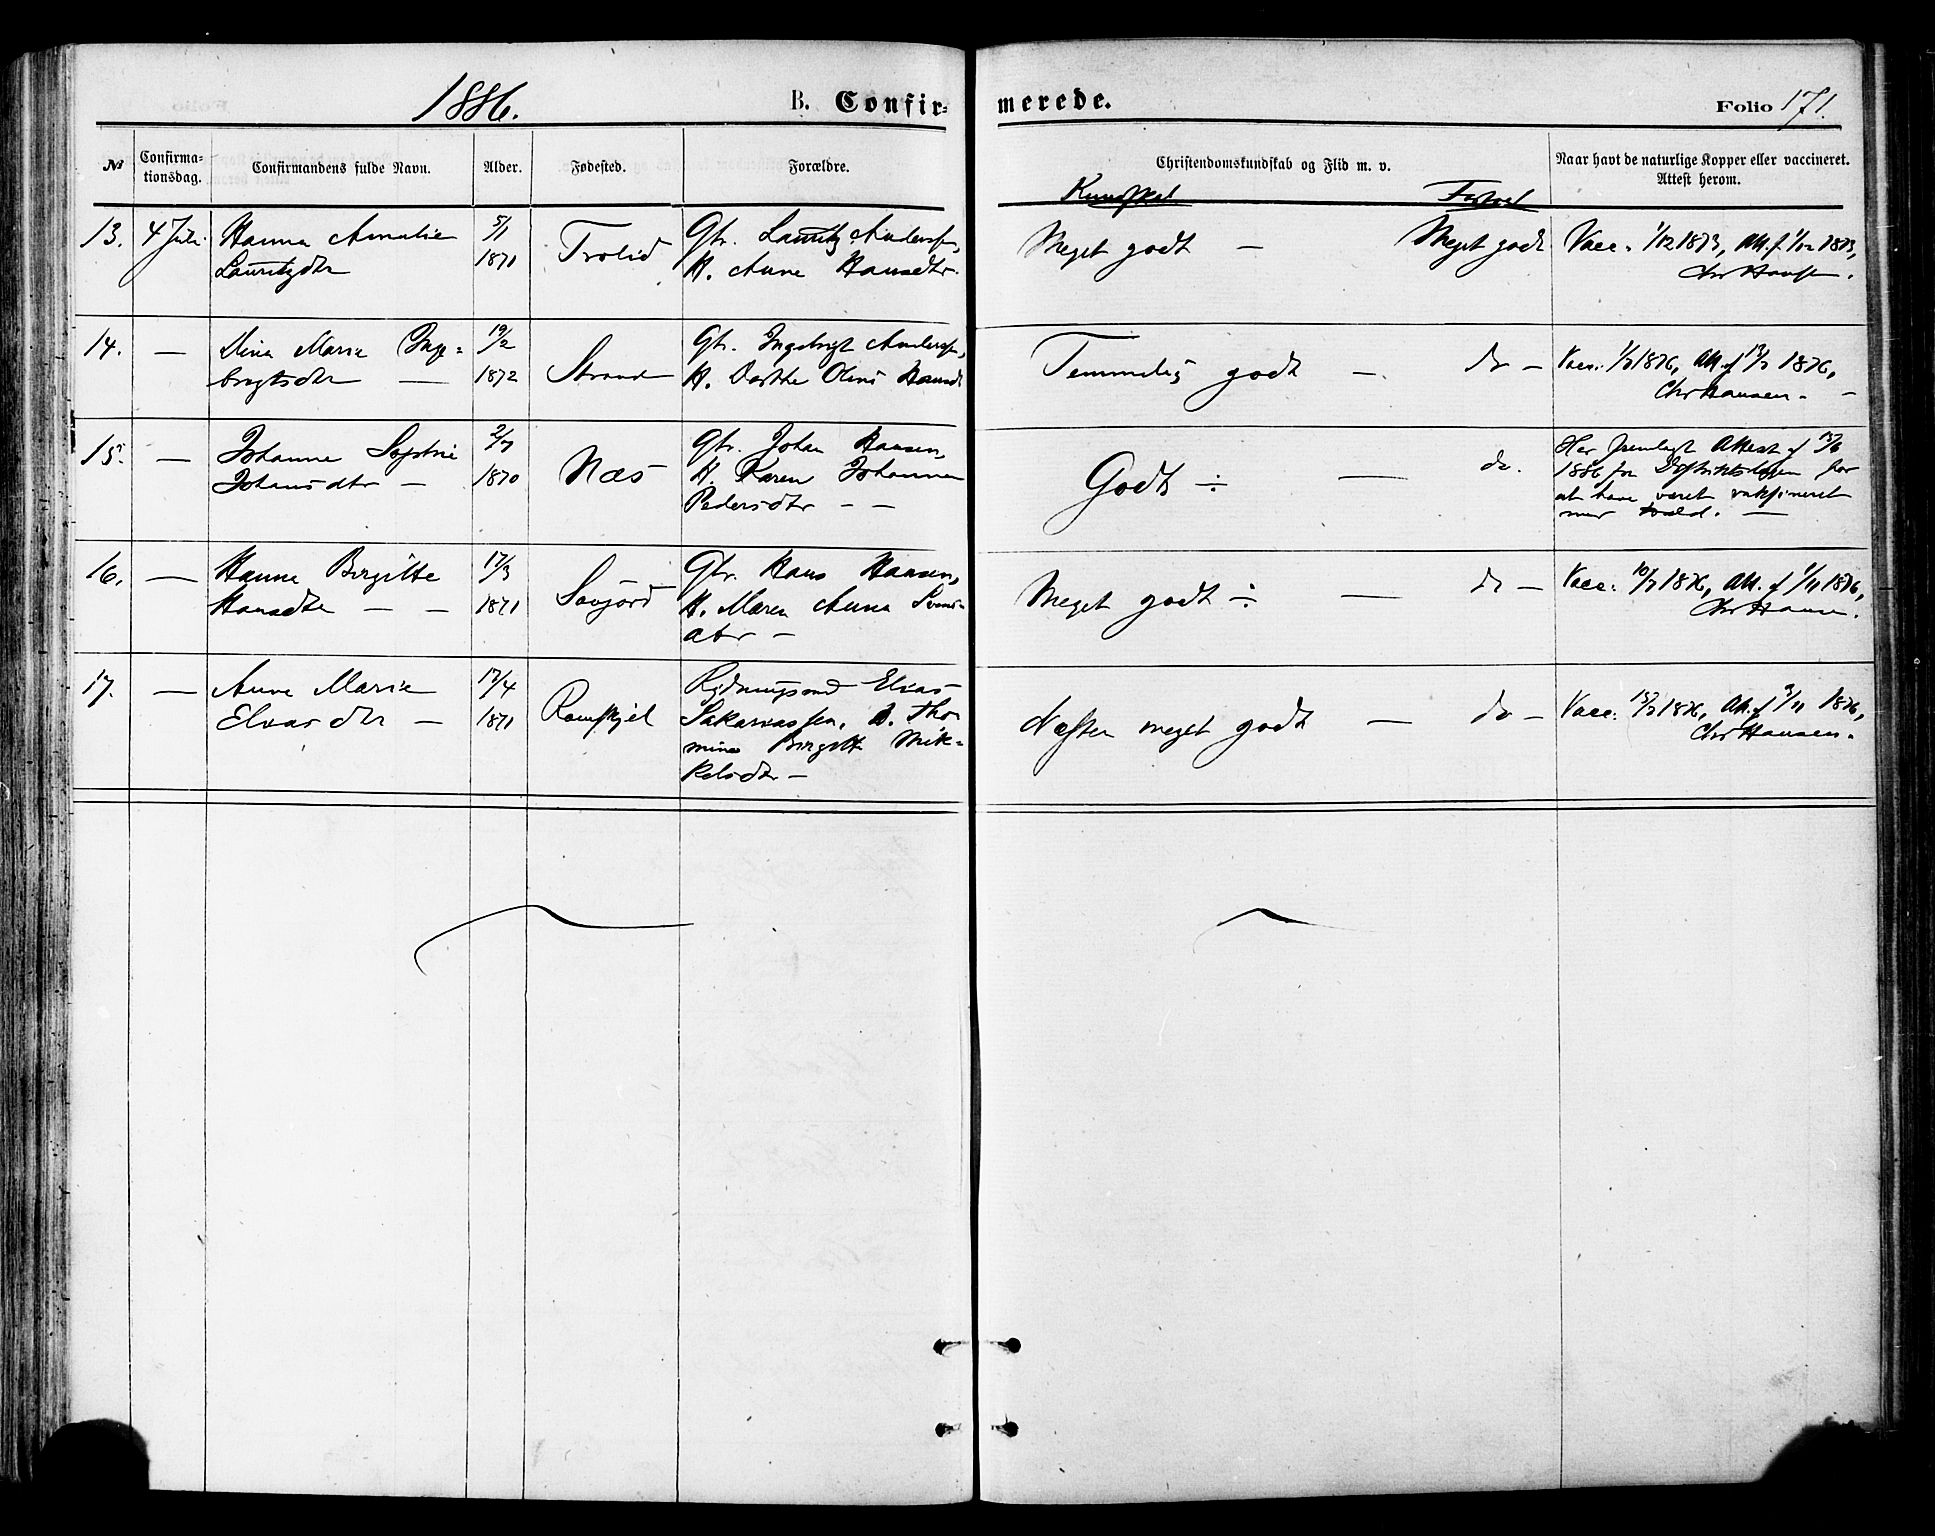 1886. B. Confir= merede. Folio 171.
№ Confirma=tionsdag. Confirmandens fulde Navn. Alder. Fødested. Forældre. Christendomskundskab og Flid m. v. Naar havt de naturlige Kopper eller vaccineret. Attest herom.
Kundskab Forhold
13. 4 Juli. Hanna Amalie 5/1 Trolid Gbr. Lauritz Anderssen, Meget godt — Meget godt Vacc. 1/12 1873, Att. f 1/12 1873,
Lauritzdtr 1871 H. Anne Hansdtr. Chr Hansen.
14. — Dina Marie Inge= 19/2 Strand Gbr. Ingebrigt Anderssen, Temmelig godt — do — Vacc. 1/7 1876, Att. f 13/7 1876,
brigtsdtr — 1872 H. Dorthe Oline Hansdtr Chr Hansen. —
15. — Johanne Sofie 2/7 Næs Gbr. Johan Hansen, Godt ÷ — do. Her fremlagt Attest f 15/6
Johansdtr — 1870 H. Karen Johanna 1886 fra Distriktslægen for
Pedersdtr — — at have været vaksineret
med Held. —
16. — Hanna Birgitte 17/3 Søvjord Gbr. Hans Hansen, Meget godt ÷ — do — Vacc. 10/7 1876, Att. f 1/11 1876,
Hansdtr — — 1871 H. Maren Anna Svends=
dtr — Chr Hansen.
17. — Anne Marie 17/4 Ramskjel Elias Næsten meget godt — do — Vacc. 15/7 1876, Att. f 3/11 1876,
Eliasdtr — 1871 Sakariassen, H. Tho=
mine Birgitte Mik= Chr Hansen.
kelsdtr —